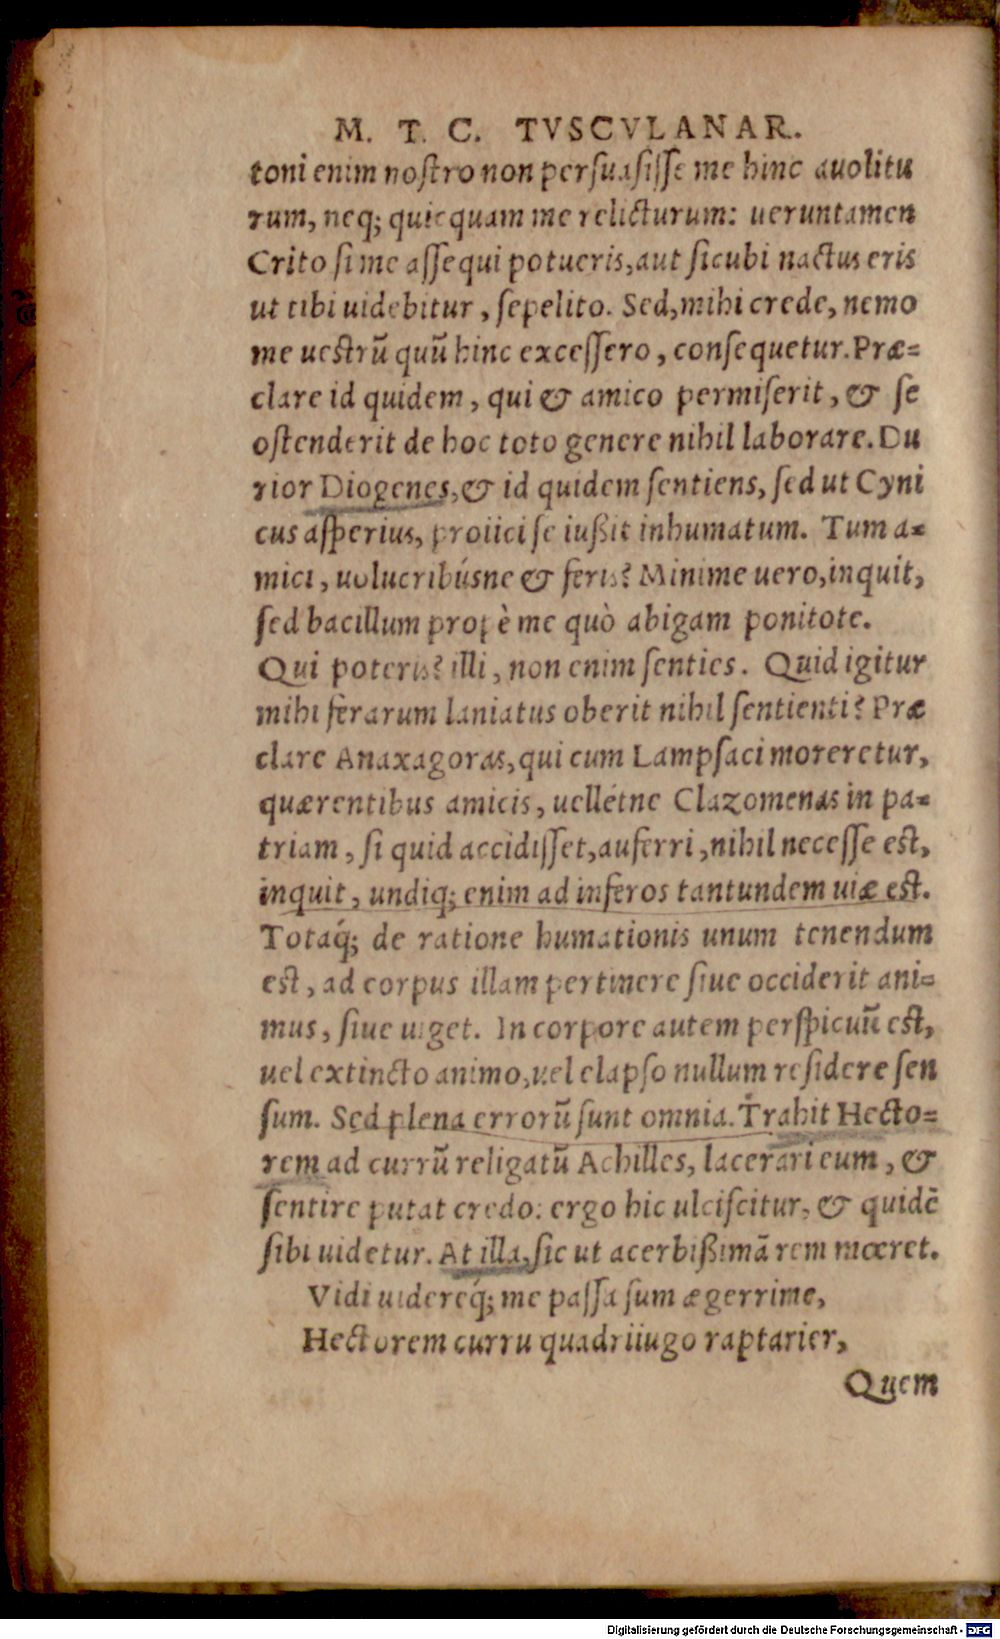 M. T. C. TVSCVLANAR.
toni enim nostro non persuasisse me hinc auolitu
rum, neq; quicquam me relicturum: ueruntamen
Crito si me assequi potueris, aut sicubi nactus eris
ut tibi uidebitur, sepelito. Sed, mihi crede, nemo
me uestrũ quũ hinc excessero, consequetur. Præ=
clare id quidem, qui & amico permiserit, & se
ostenderit de hoc toto genere nihil laborare. Du
rior Diogenes, & id quidem sentiens, sed ut Cyni
cus asperius, proiici se iußit inhumatum. Tum a=
mici, uolucribúsne & feris? Minime uero, inquit,
sed bacillum propè me quò abigam ponitote.
Qui poteris? illi, non enim senties. Quid igitur
mihi ferarum laniatus oberit nihil sentienti? Præ
clare Anaxagoras, qui cum Lampsaci moreretur,
quærentibus amicis, uellétne Clazomenas in pa=
triam, si quid accidisset, auferri, nihil necesse est,
inquit, undiq; enim ad inferos tantundem uiæ est.
Totaq́; de ratione humationis unum tenendum
est, ad corpus illam pertinere siue occiderit ani=
mus, siue uiget. In corpore autem perspicuũ est,
uel extincto animo, uel elapso nullum residere sen
sum. Sed plena errorũ sunt omnia. Trahit Hecto=
rem ad currũ religatũ Achilles, lacerari eum, &
sentire putat credo: ergo hic ulciscitur, & quidẽ
sibi uidetur. At illa, sic ut acerbißimã rem mœret.
Vidi uidereq́; me passa sum ægerrime,
Hectorem curru quadriiugo raptarier,
Quem
Digitalisierung gefördert durch die Deutsche Forschungsgemeinschaft - DFG